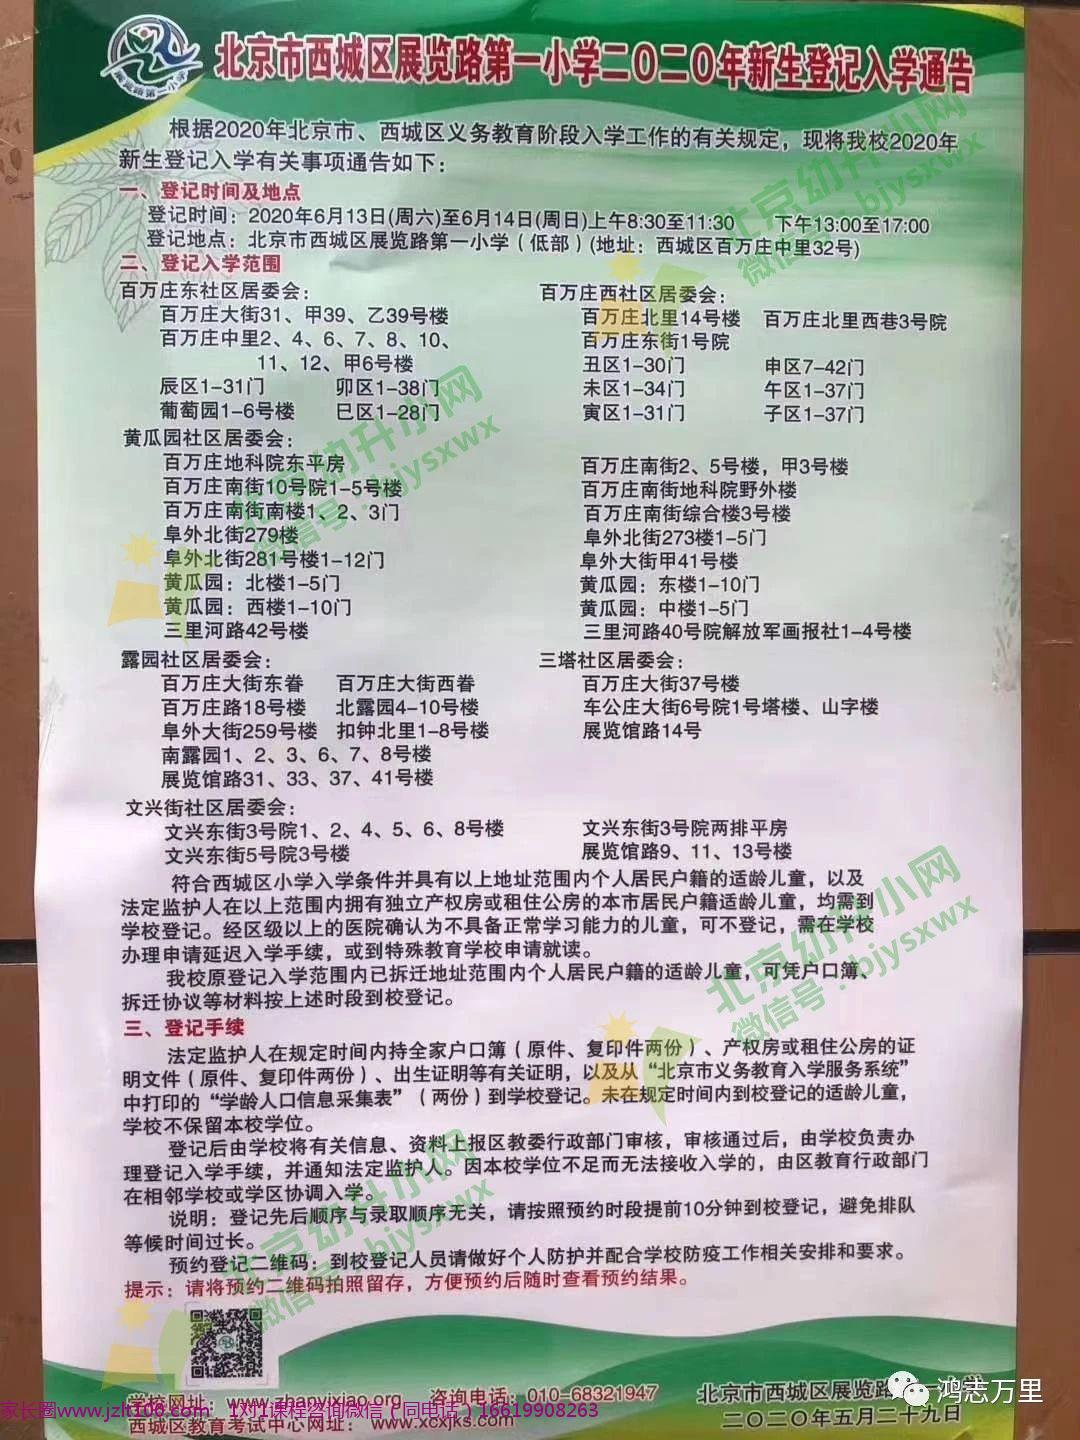 北京市西城区展览路第一小学二〇二〇年新生登记入学通告
根据2020年北京市、西城区义务教育阶段入学工作的有关规定，现将我校2020年
新生登记入学有关事项通告如下：
一、登记时间及地点
登记时间：2020年6月13日(周六)至6月14日(周日)上午8:30至11:30 下午13:00至17:00
登记地点：北京市西城区展览路第一小学（低部）(地址：西城区百万庄中里32号)
二、登记入学范围
百万庄东社区居委会：
百万庄大街31、甲39、乙39号楼
百万庄中里2、4、6、7、8、10、
11、12、甲6号楼
辰区1-31门 卯区1-38门
葡萄园1-6号楼 巳区1-28门
百万庄西社区居委会：
百万庄北里14号楼 百万庄北里西巷3号院
百万庄东街1号院
丑区1-30门 申区7-42门
未区1-34门 午区1-37门
寅区1-31门 子区1-37门
黄瓜园社区居委会：
百万庄地科院东平房
百万庄南街10号院1-5号楼
百万庄南街南楼1、2、3门
阜外北街279楼
阜外北街281号楼1-12门
黄瓜园：北楼1-5门
黄瓜园：西楼1-10门
三里河路42号楼
百万庄南街2、5号楼，甲3号楼
百万庄南街地科院野外楼
百万庄南街综合楼3号楼
阜外北街273楼1-5门
阜外大街甲41号楼
黄瓜园：东楼1-10门
黄瓜园：中楼1-5门
三里河路40号院解放军画报社1-4号楼
露园社区居委会：
百万庄大街东眷 百万庄大街西眷
百万庄路18号楼 北露园4-10号楼
阜外大街259号楼 扣钟北里1-8号楼
南露园1、2、3、6、7、8号楼
展览馆路31、33、37、41号楼
三塔社区居委会：
百万庄大街37号楼
车公庄大街6号院1号塔楼、山字楼
展览馆路14号
文兴街社区居委会：
文兴东街3号院1、2、4、5、6、8号楼 文兴东街3号院两排平房
文兴东街5号院3号楼 展览馆路9、11、13号楼
符合西城区小学入学条件并具有以上地址范围内个人居民户籍的适龄儿童，以及
法定监护人在以上范围内拥有独立产权房或租住公房的本市居民户籍适龄儿童，均需到
学校登记。经区级以上的医院确认为不具备正常学习能力的儿童，可不登记，需在学校
办理申请延迟入学手续，或到特殊教育学校申请就读。
我校原登记入学范围内已拆迁地址范围内个人居民户籍的适龄儿童，可凭户口簿、
拆迁协议等材料按上述时段到校登记。
三、登记手续
法定监护人在规定时间内持全家户口簿（原件、复印件两份）、产权房或租住公房的证
明文件（原件、复印件两份）、出生证明等有关证明，以及从“北京市义务教育入学服务系统”
中打印的“学龄人口信息采集表”（两份）到学校登记。未在规定时间内到校登记的适龄儿童，
学校不保留本校学位。
登记后由学校将有关信息、资料上报区教委行政部门审核，审核通过后，由学校负责办
理登记入学手续，并通知法定监护人。因本校学位不足而无法接收入学的，由区教育行政部门
在相邻学校或学区协调入学。
说明：登记先后顺序与录取顺序无关，请按照预约时段提前10分钟到校登记，避免排队
等候时间过长。
预约登记二维码：到校登记人员请做好个人防护并配合学校防疫工作相关安排和要求。
提示：请将预约二维码拍照留存，方便预约后随时查看预约结果。
学校网址：www.zhanyixiao.org 咨询电话：010-68321947
西城区教育考试中心网址：www.xcxjks.com
北京市西城区展览路第一小学
二〇二〇年五月二十九日
家长圈www.jzlt100.com 1对1课程咨询微信（同电话）16619908263
鸿志万里
北京幼升小网
微信号：bjysxwx
北京幼升小网
微信号：bjysxwx
北京幼升小网
微信号：bjysxwx
北京幼升小网
微信号：bjysxwx